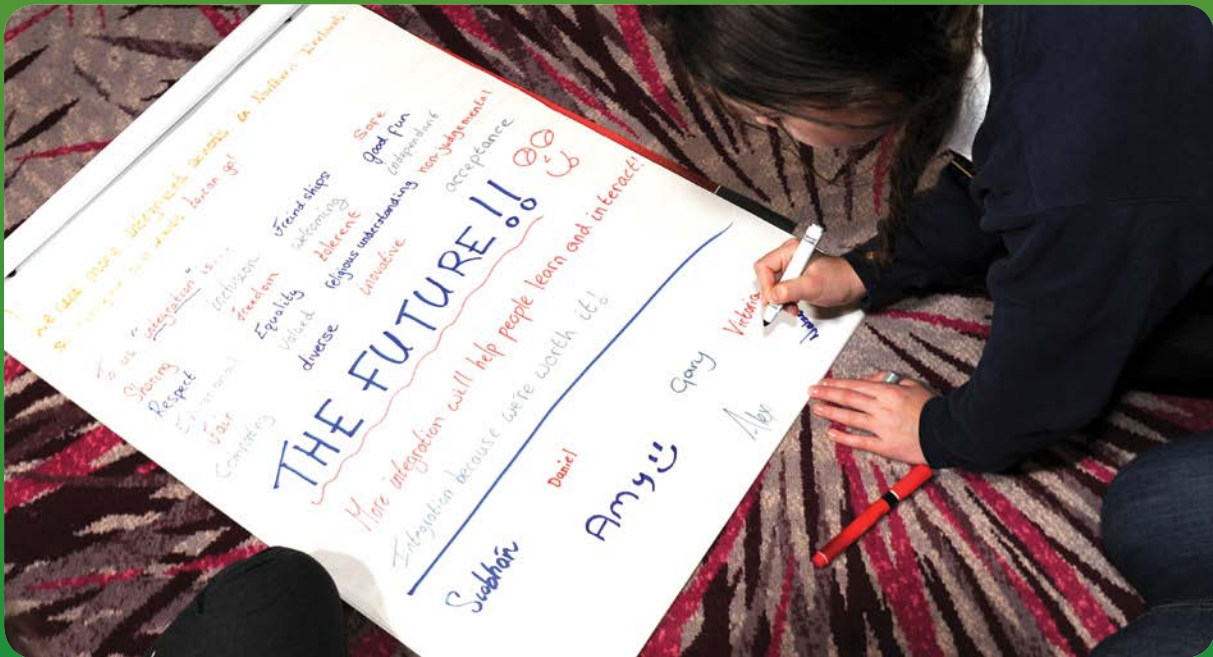 we need more integrated schools in Northern Ireland
so everyone who wants to can go!
To us "integration" is....
Sharing
Respect
Fair
inclusion
Freedom
Equality
Valued
diverse
Freindships
welcoming
tolerent
religious understanding
innovative
Safe
good fun
independant
non-judgemental
acceptance
THE FUTURE!!
More integration will help people learn and interact!
Integration because we're worth it!
Siobhán
Daniel
Amy
Gary
Alex
Victoria